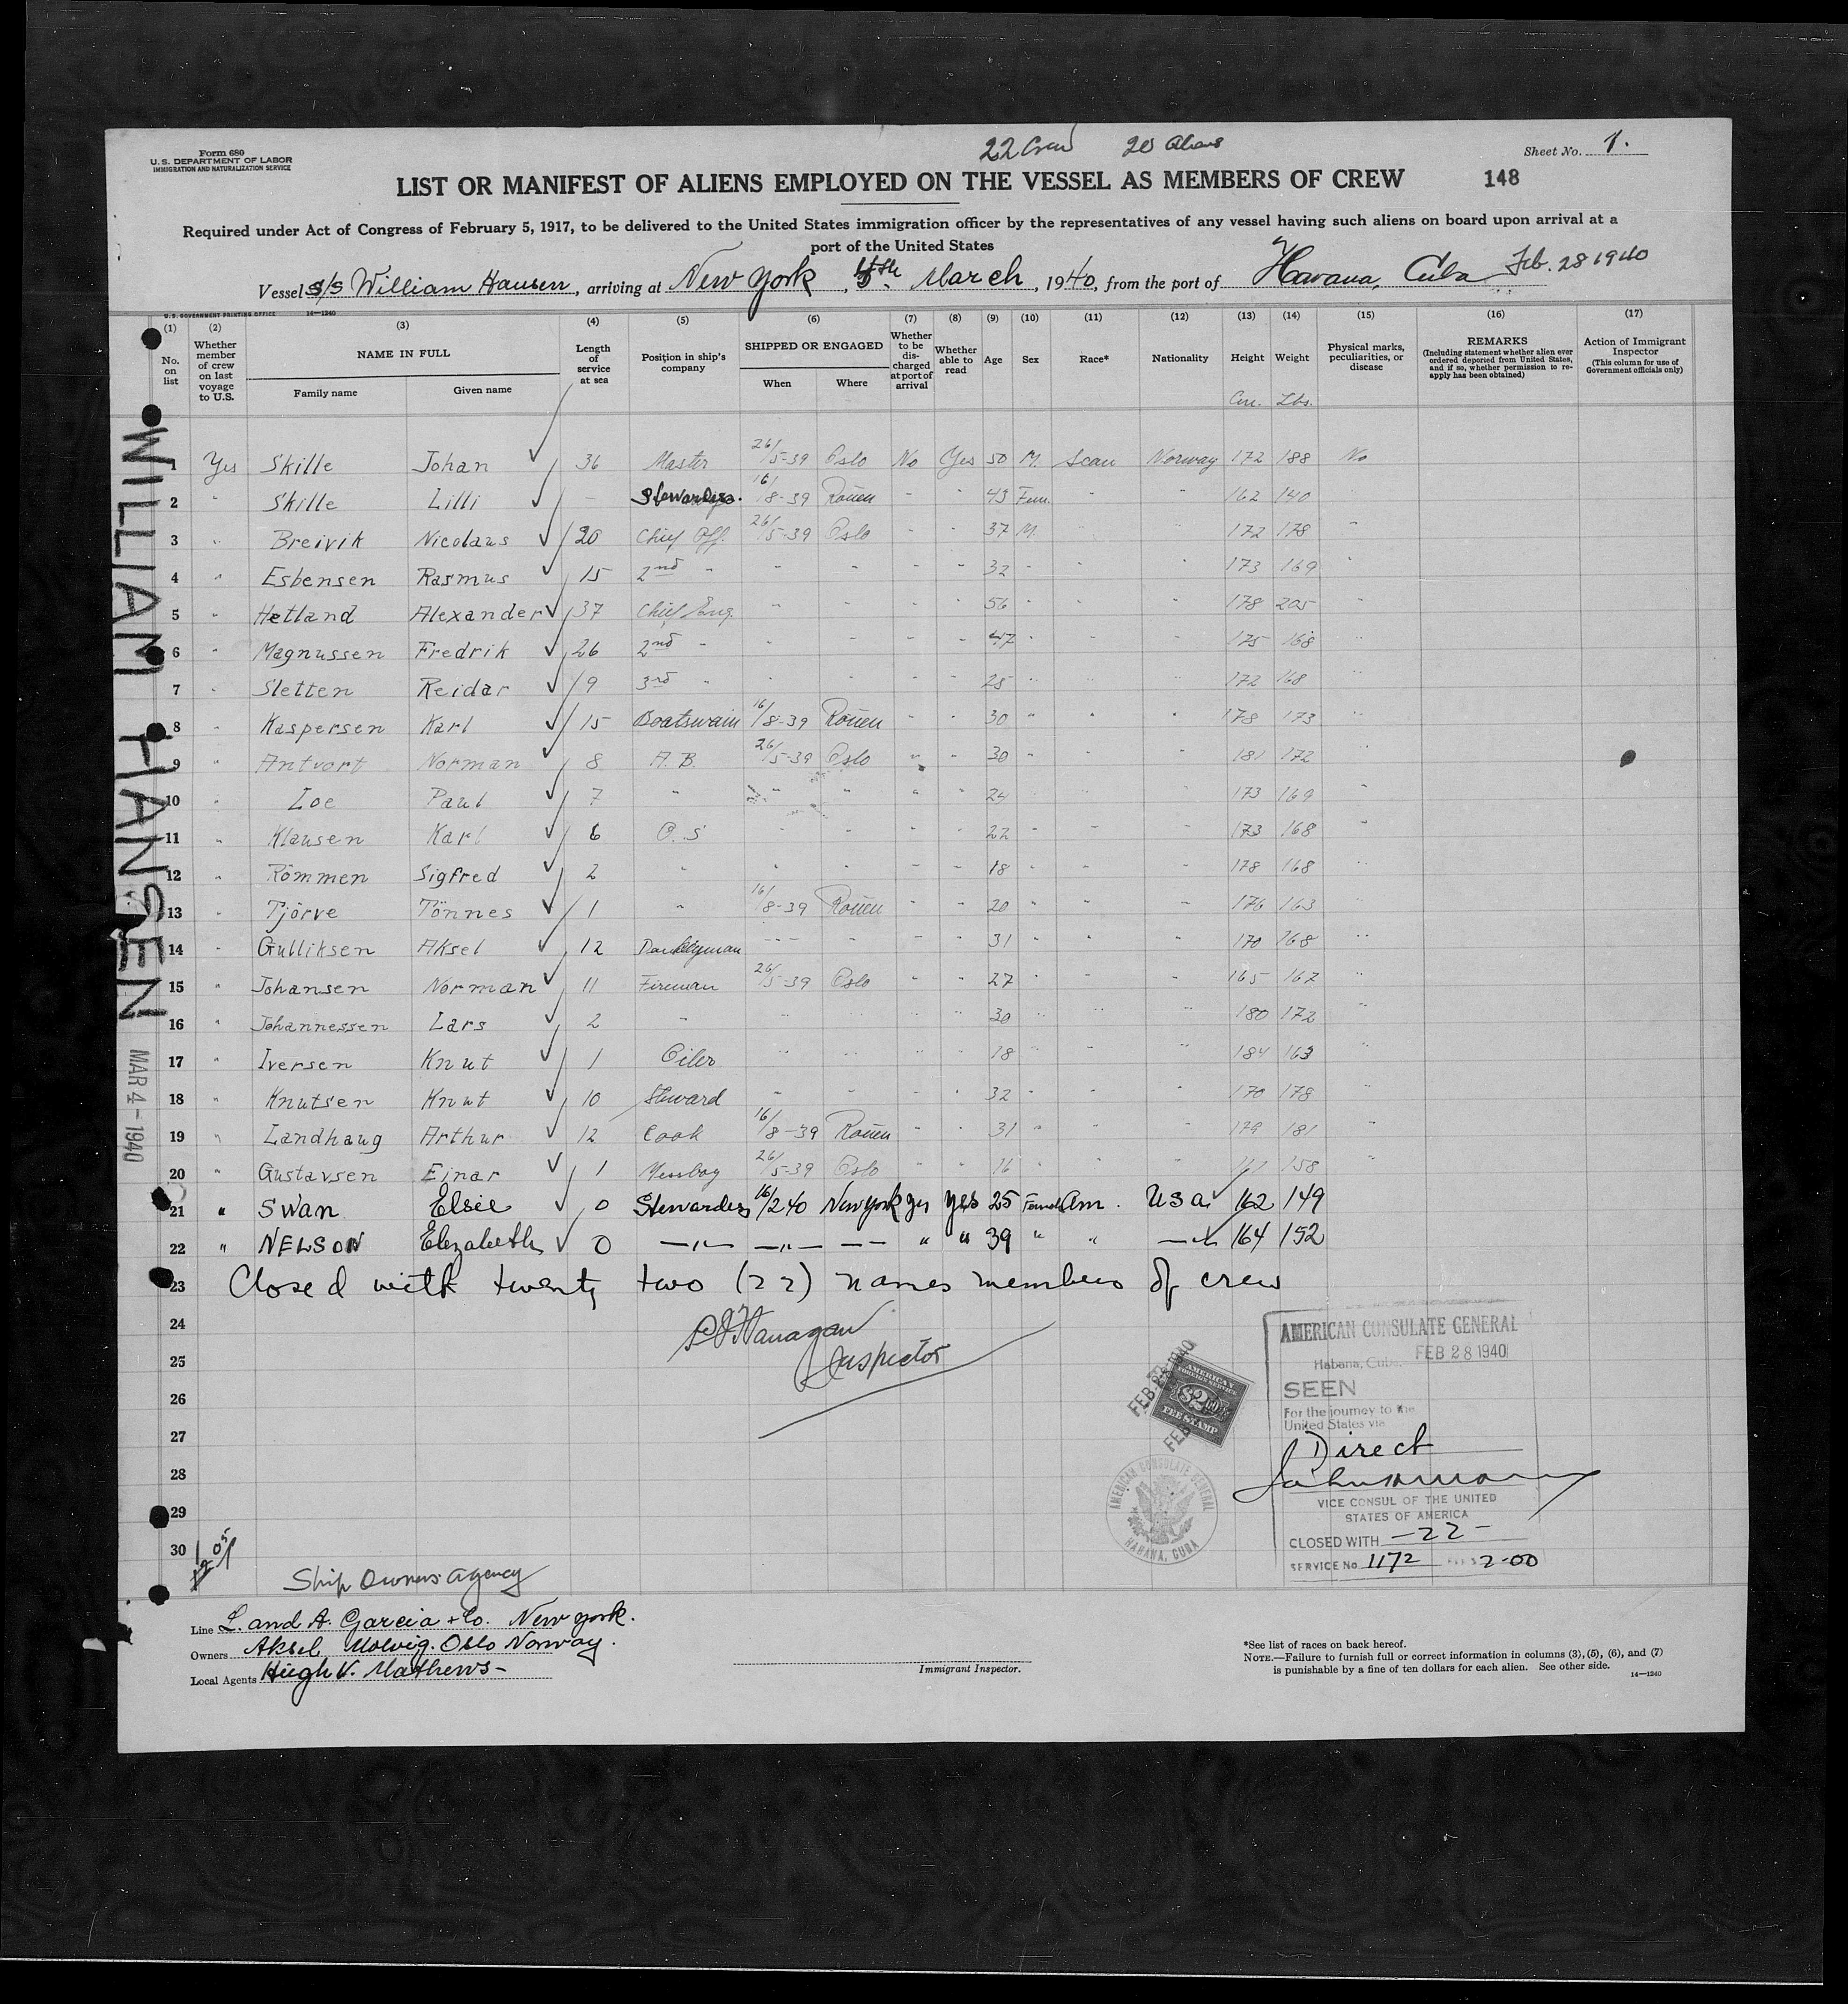 22 Crew 20 Aliens
Form 680
U. S. DEPARTMENT OF LABOR
IMMIGRATION AND NATURALIZATION SERVICE
Sheet No. 1.
LIST OR MANIFEST OF ALIENS EMPLOYED ON THE VESSEL AS MEMBERS OF CREW 148
Required under Act of Congress of February 5, 1917, to be delivered to the United States immigration officer by the representatives of any vessel having such aliens on board upon arrival at a
port of the United States
Vessel S/S William Hansen, arriving at New York, 4th March, 1940, from the port of Havana, Cuba Feb. 28 1940
U. S. GOVERNMENT PRINTING OFFICE 14—1240
(1) (2) (3) (4) (5) (6) (7) (8) (9) (10) (11) (12) (13) (14) (15) (16) (17)
No. on list
Whether member of crew on last voyage to U.S.
NAME IN FULL
Family name Given name
Length of service at sea
Position in ship's company
SHIPPED OR ENGAGED
When Where
Whether to be discharged at port of arrival
Whether able to read
Age Sex Race* Nationality Height Weight
Physical marks, peculiarities, or disease
REMARKS
(Including statement whether alien ever ordered deported from United States, and if so, whether permission to re-apply has been obtained)
Action of Immigrant Inspector
(This column for use of Government officials only)
Cm. Lbs.
1 Yes Skille Johan 36 Master 26/5-39 Oslo No Yes 50 M. Scan Norway 172 188 No
2 " Skille Lilli - Stewardess. 16/8-39 Rouen - " 43 Fem. " " 162 140
3 " Breivik Nicolaus 20 Chief Off. 26/5-39 Oslo - " 37 M. " " 172 178 "
4 " Esbensen Rasmus 15 2nd " " " - " 32 " " " 173 169 "
5 " Hetland Alexander 37 Chief Eng. " " " " 56 " " " 178 205 "
6 " Magnussen Fredrik 26 2nd " " " " " 47 " " " 175 168 "
7 " Sletten Reidar 9 3rd " " " " " 25 " " " 172 168 "
8 " Kaspersen Karl 15 Boatswain 16/8-39 Rouen " " 30 " " " 178 173 "
9 " Antvort Norman 8 A. B. 26/5-39 Oslo " " 30 " " " 181 172 "
10 " Loe Paul 7 " " " " " 24 " " " 173 169 "
11 " Klausen Karl 6 O. S " " " " 22 " " " 173 168 "
12 " Römmen Sigfred 2 " " " " " 18 " " " 178 168 "
13 " Tjörve Tönnes 1 " 16/8-39 Rouen " " 20 " " " 176 163 "
14 " Gulliksen Aksel 12 Donkeyman " " " " 31 " " " 170 168 "
15 " Johansen Norman 11 Fireman 26/5-39 Oslo " " 27 " " " 165 162 "
16 " Johannessen Lars 2 " " " " " 30 " " " 180 172 "
17 " Iversen Knut 1 Oiler " " " " 18 " " " 184 163 "
18 " Knutsen Knut 10 Steward " " " " 32 " " " 170 178 "
19 " Landhaug Arthur 12 Cook 16/8-39 Rouen " " 31 " " " 179 181 "
20 " Gustavsen Einar 1 Messboy 26/5-39 Oslo " " 16 " " " 158 "
21 " Swan Elsie 0 Stewardess 16/2 40 New York yes yes 25 Female Am. USA 162 149
22 " NELSON Elizabeth 0 —"— —"— —— " " 39 " " —"— 164 152
23 Closed with twenty two (22) names members of crew
24
25
Inspector
26
27
28
29
30
WILLIAM HANSEN
MAR 4-1940
FEB 28 1940
AMERICAN FOREIGN SERVICE
$2.00
FEE STAMP
AMERICAN CONSULATE GENERAL
HABANA, CUBA
AMERICAN CONSULATE GENERAL
Habana, Cuba. FEB 28 1940
SEEN
For the journey to the
United States via
Direct
VICE CONSUL OF THE UNITED
STATES OF AMERICA
CLOSED WITH —22—
SERVICE No. 1172 2.00
Ship Owners Agency
Line L. and A. Garcia + Co. New York.
Owners Aksel Molvig. Oslo Norway.
Local Agents Hugh V. Mathews -
Immigrant Inspector.
*See list of races on back hereof.
NOTE.—Failure to furnish full or correct information in columns (3), (5), (6), and (7)
is punishable by a fine of ten dollars for each alien. See other side. 14—1240